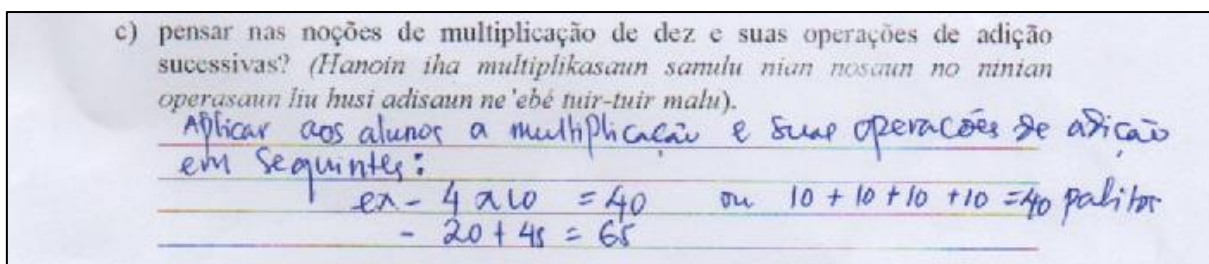 c) pensar nas noções de multiplicação de dez e suas operações de adição
sucessivas? (Hanoin iha multiplikasaun sanulu nian nosaun no ninian
operasaun liu husi adisaun ne'ebé tuir-tuir malu).
Aplicar aos alunos a multiplicação e suas operacões de adição
em seguintes:
ex - 4 x 10 = 40 ou 10 + 10 + 10 + 10 = 40 palitos
- 20 + 45 = 65